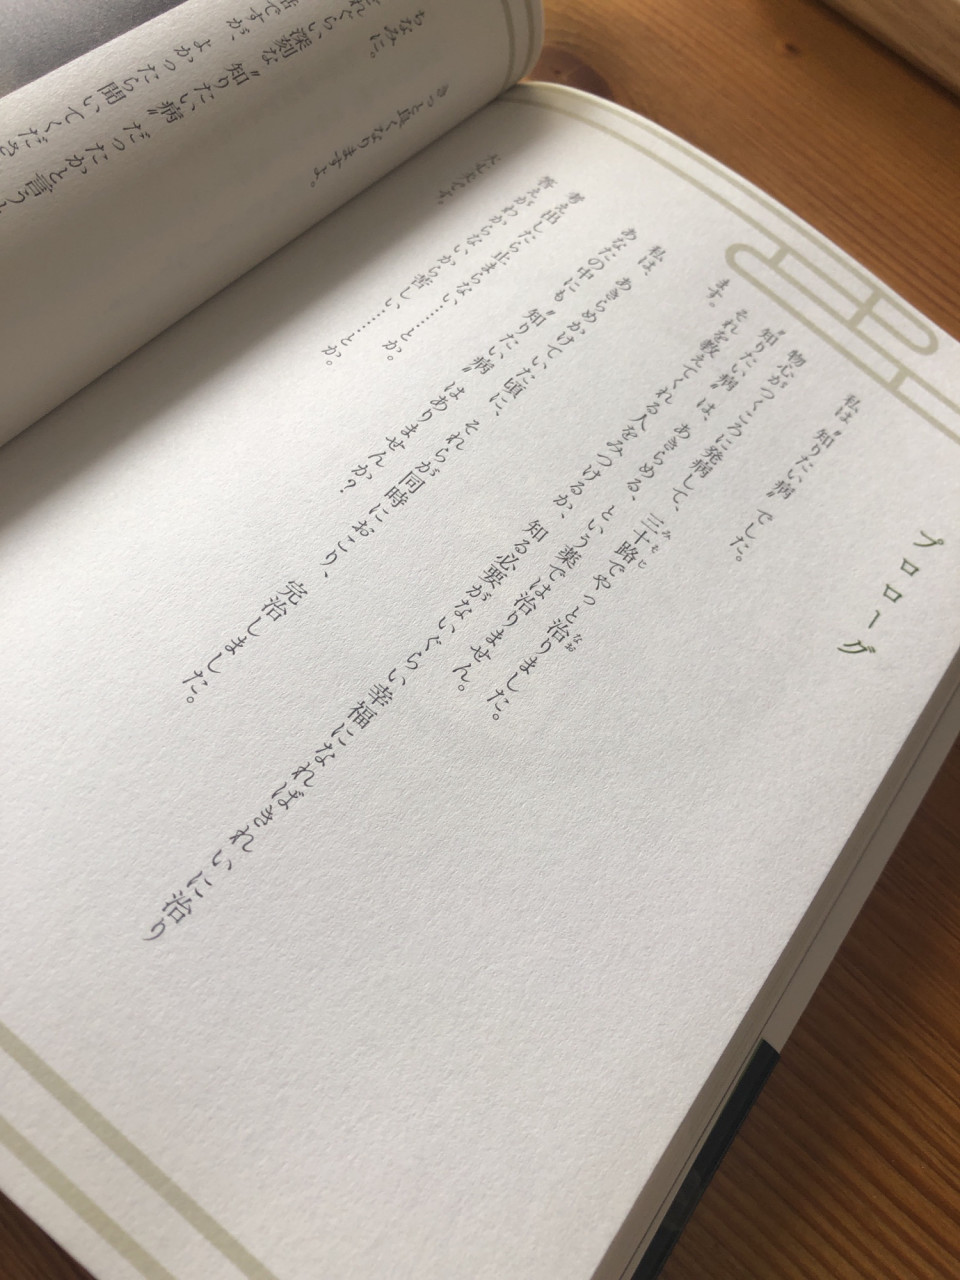 プロローグ
私は〝知りたい病〟でした。
物心がつくころに発病して、三十路でやっと治りました。
〝知りたい病〟は、あきらめる、という薬では治りません。
それを教えてくれる人をみつけるか、知る必要がないぐらい幸福になればきれいに治り
ます。
私は、あきらめかけていた頃に、それらが同時におこり、完治しました。
あなたの中にも〝知りたい病〟はありませんか？
考え出したら止まらない……とか。
答えがわからないから苦しい……とか。
大丈夫です。
きっと良くなりますよ。
ちなみに。
れぐらい、深刻な〝知りたい病〟だったかと言う
ですが、よかったら聞いてくださ